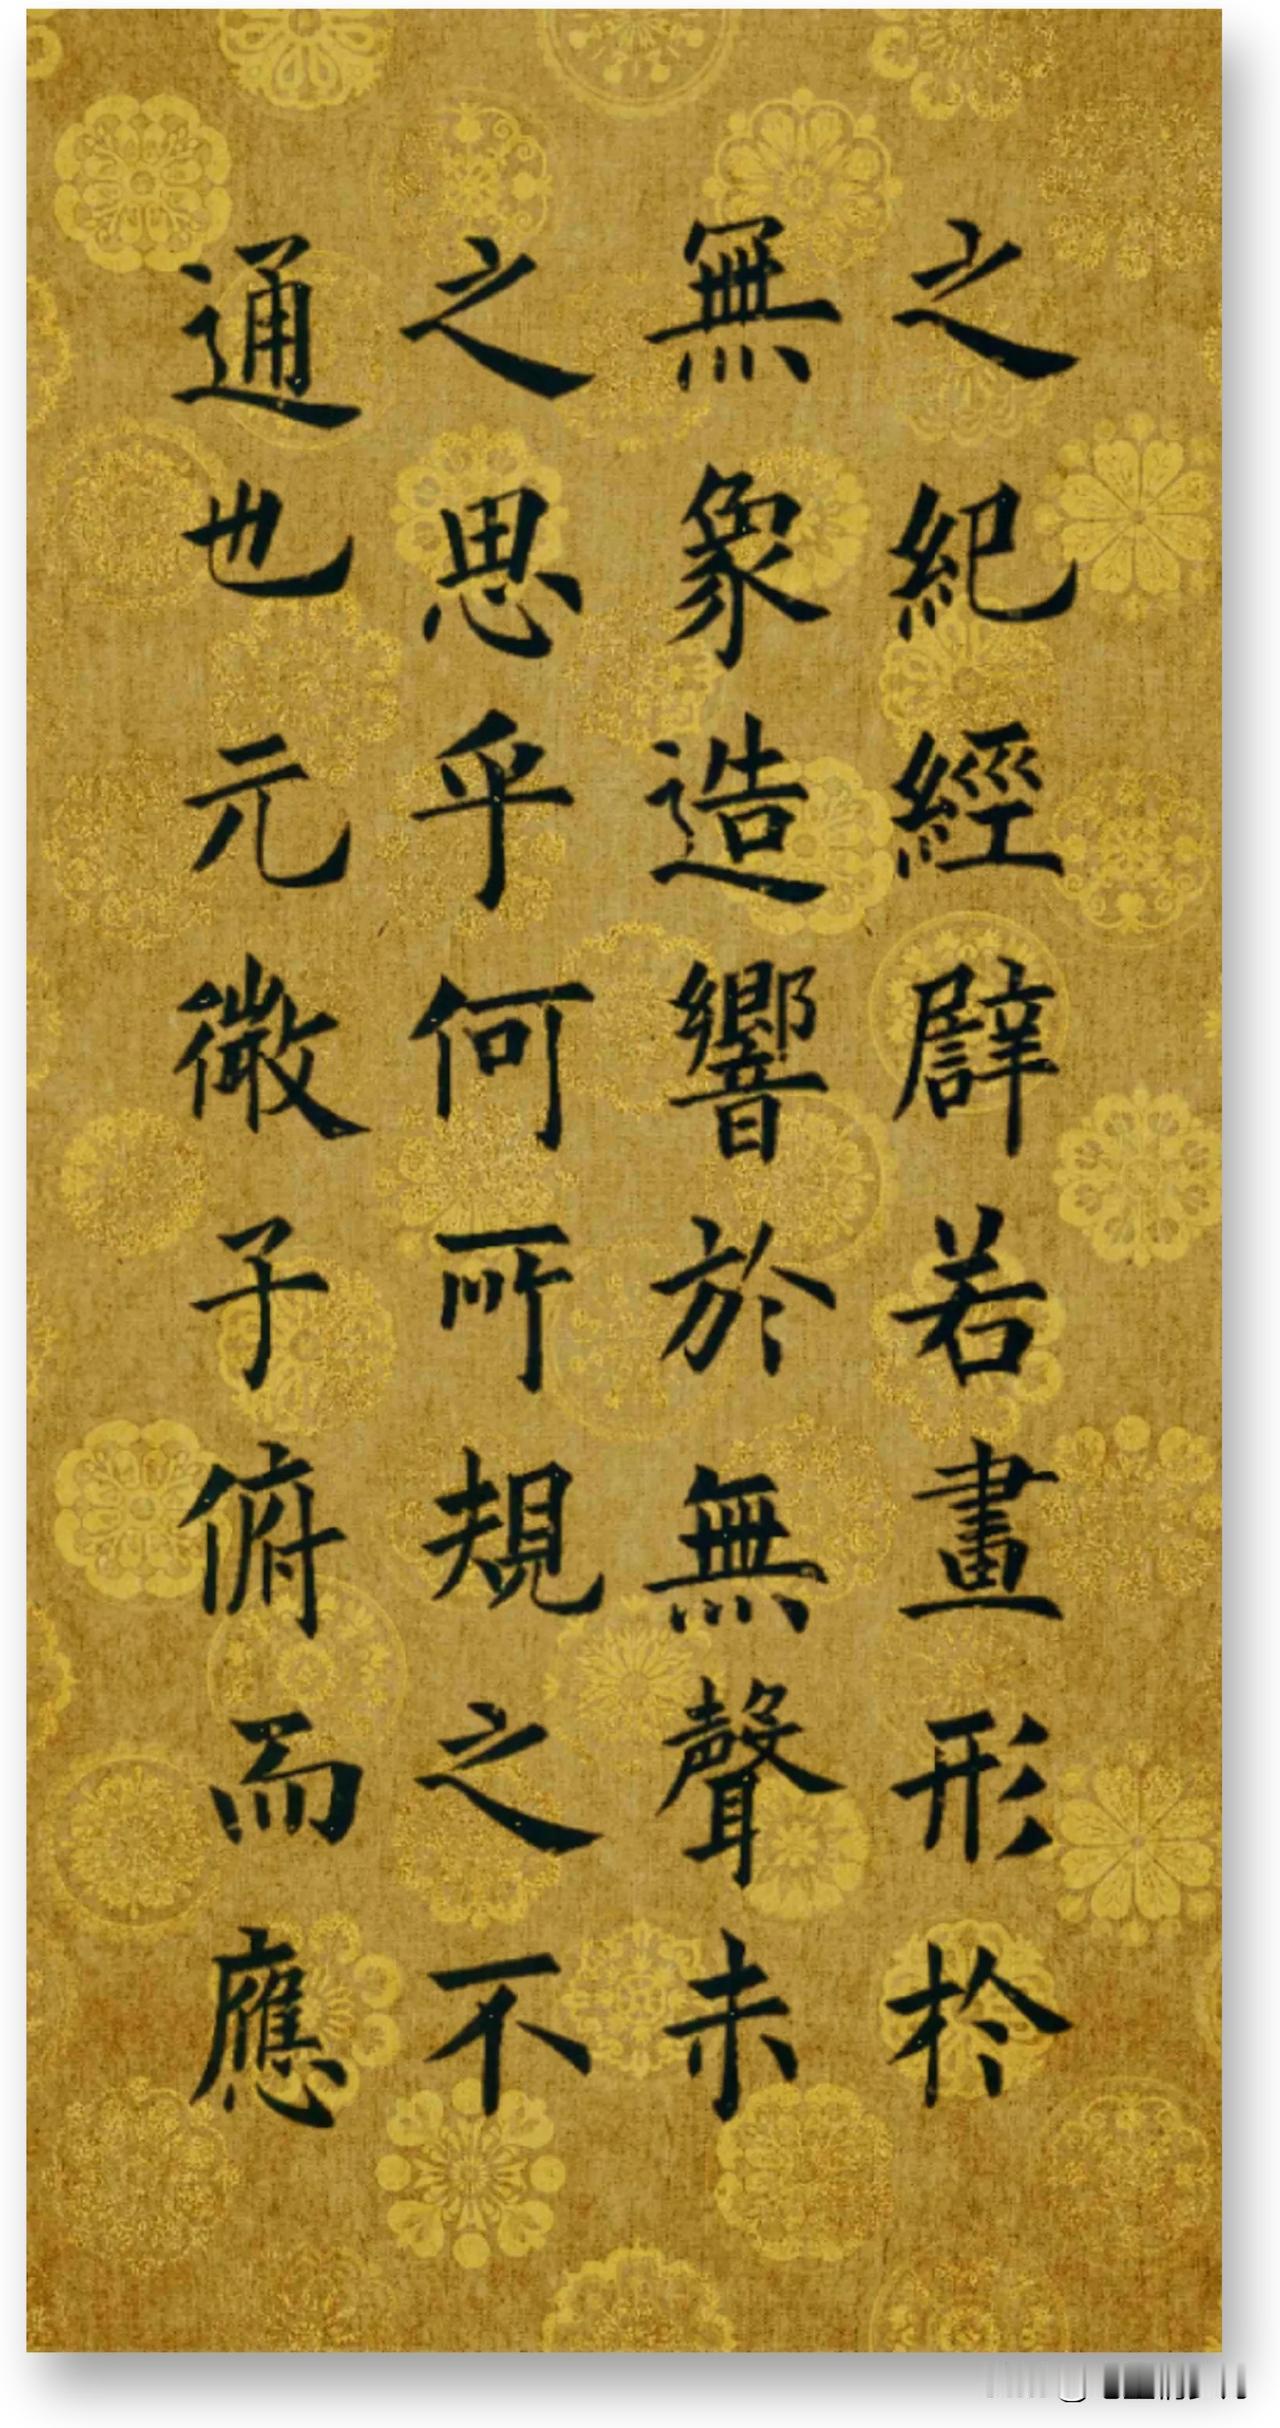 之紀經譬若畫形於
無象造響於無聲未
之思乎何所規之不
通也元微子俯而應